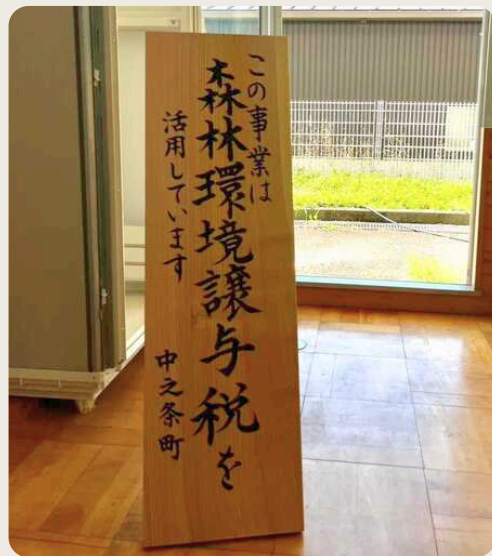 この事業は
森林環境譲与税を
活用しています
中之条町